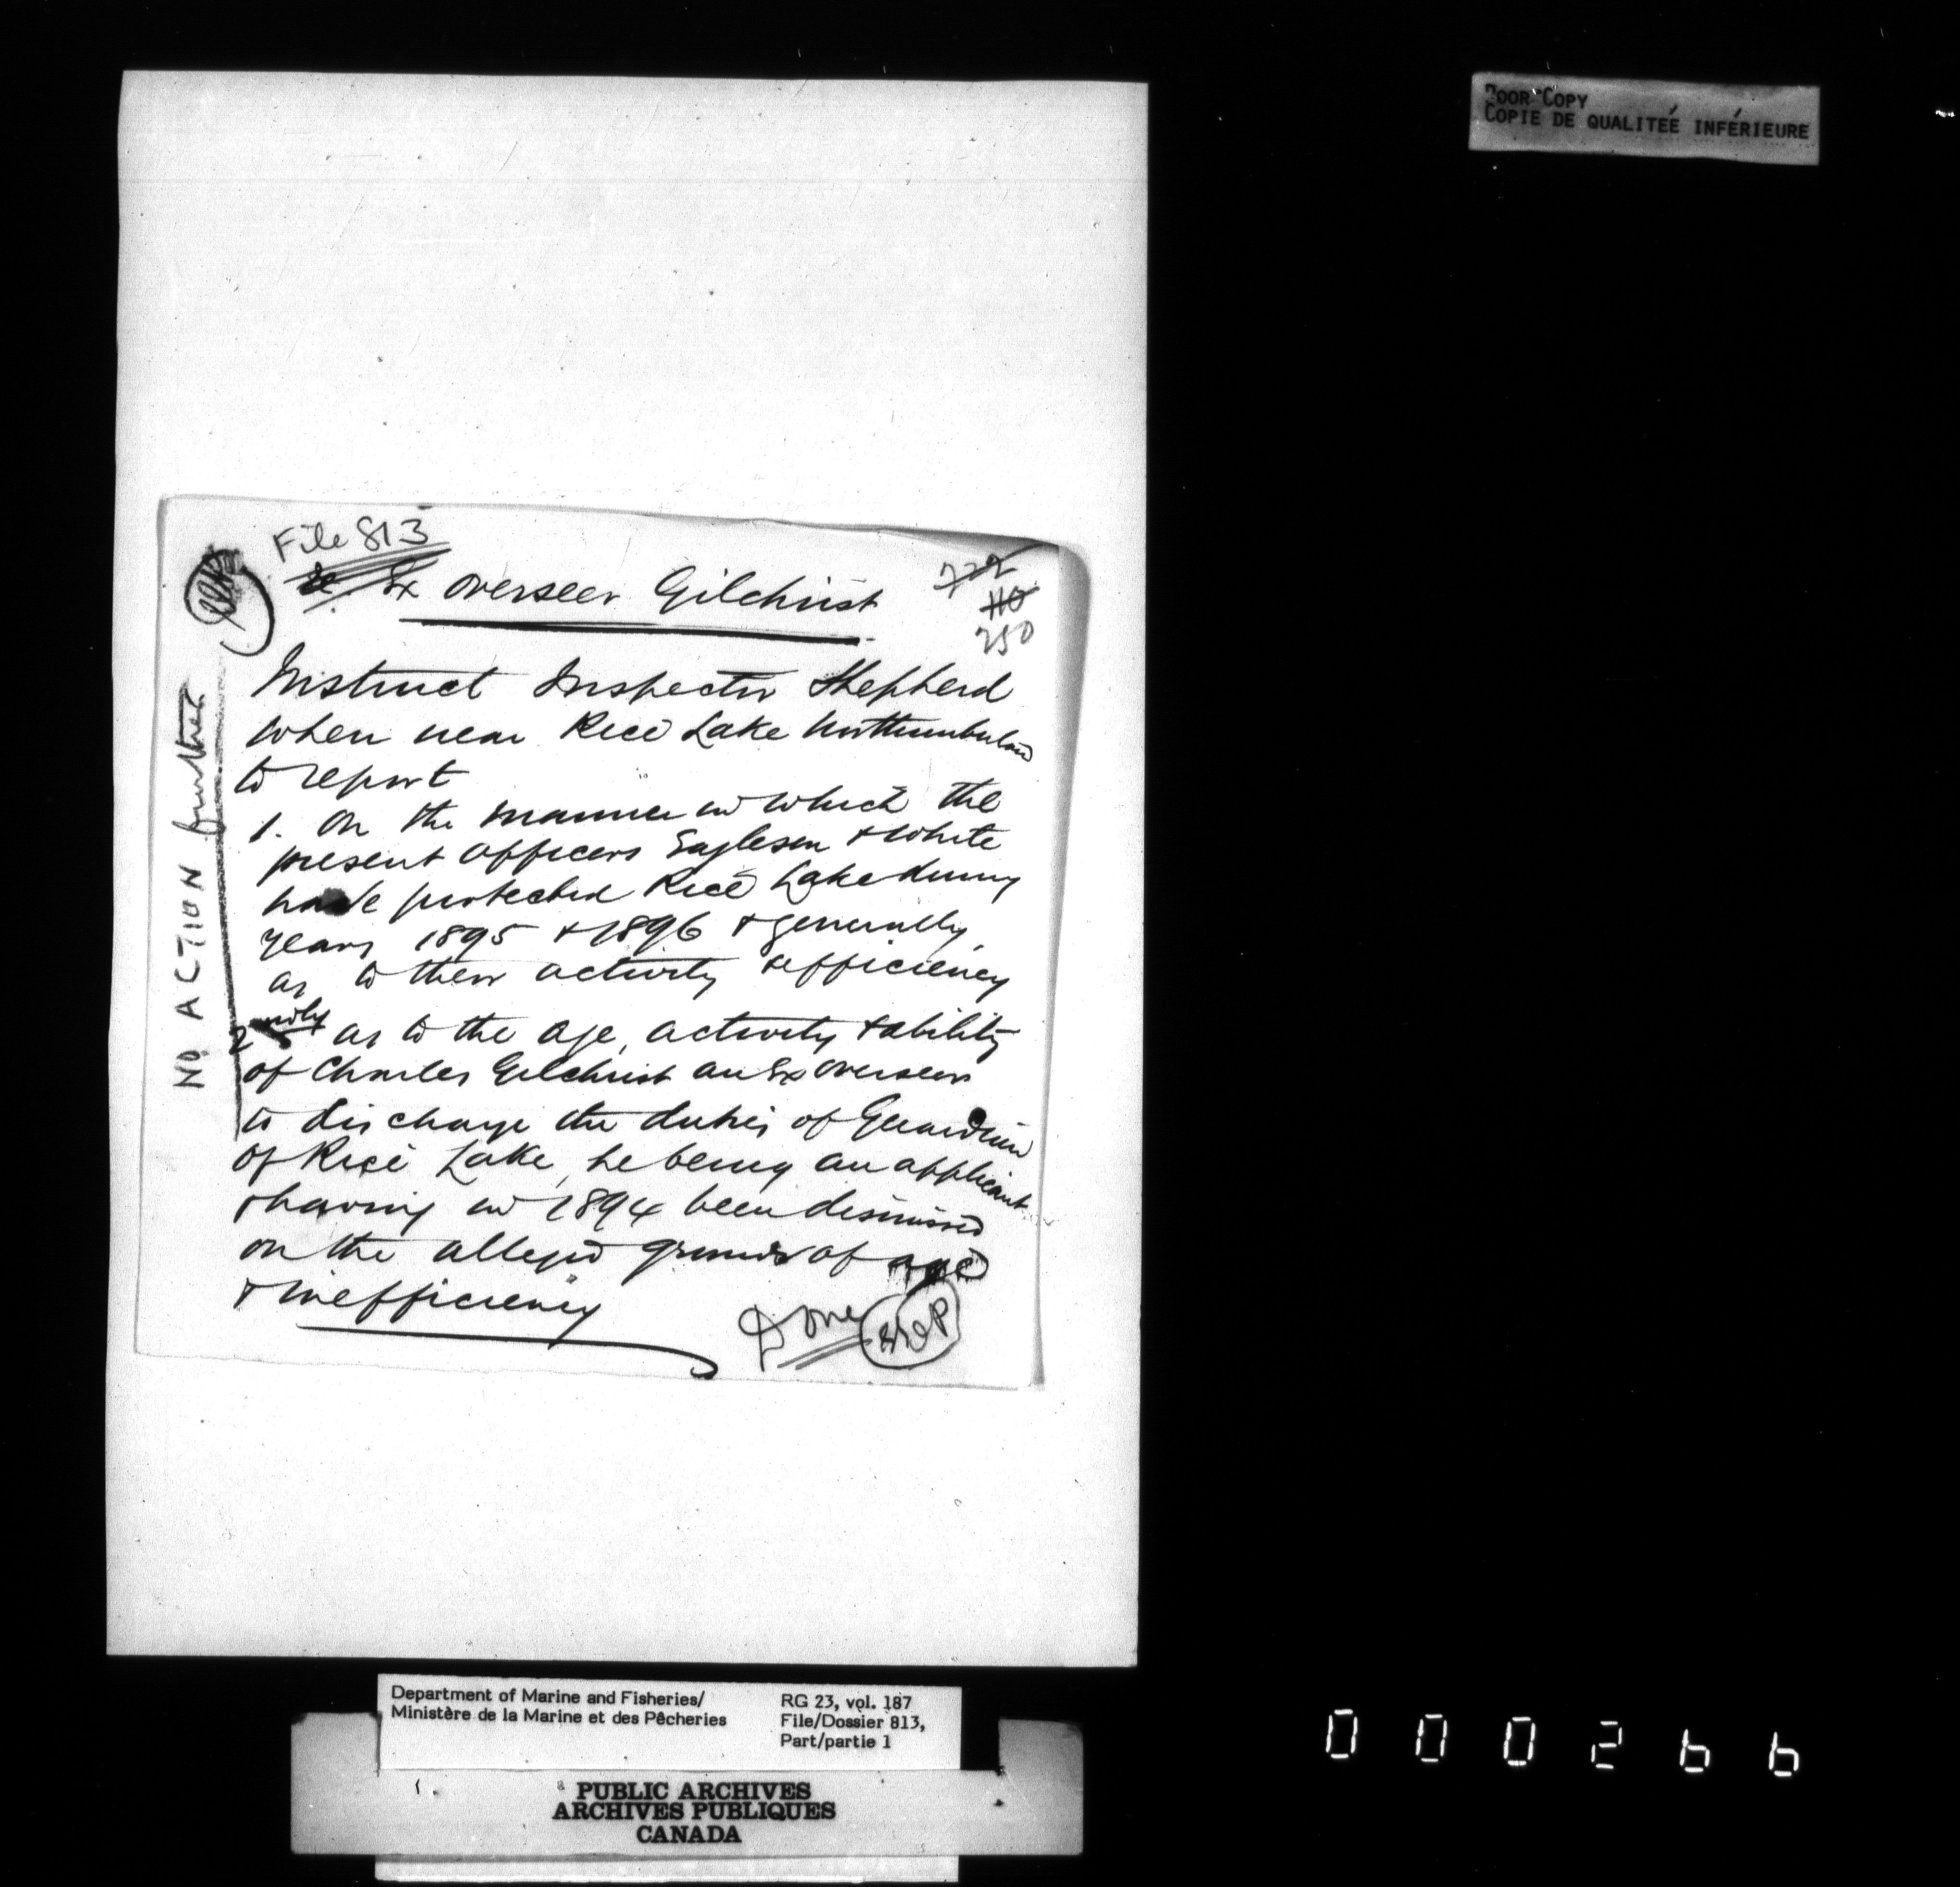 POOR COPY
COPIE DE QUALITEÉ INFÉRIEURE
File 813
re Ex overseer Gilchrist
722
110
250
Instruct Inspector Shepherd
when near Rice Lake Northumberland
to report
1. On the manner in which the
present officers Eagleson & White
have protected Rice Lake during
years 1895 & 1896 & generally
as to their activity & efficiency
2ndly as to the age, activity & ability
of Charles Gilchrist an Ex overseer
to discharge the duties of Guardian
of Rice Lake, he being an applicant
& having in 1894 been dismissed
on the alleged grounds of age
& inefficiency
Done
EEP
NO ACTION further
Department of Marine and Fisheries/
Ministère de la Marine et des Pêcheries
RG 23, vol. 187
File/Dossier 813,
Part/partie 1
PUBLIC ARCHIVES
ARCHIVES PUBLIQUES
CANADA
000266